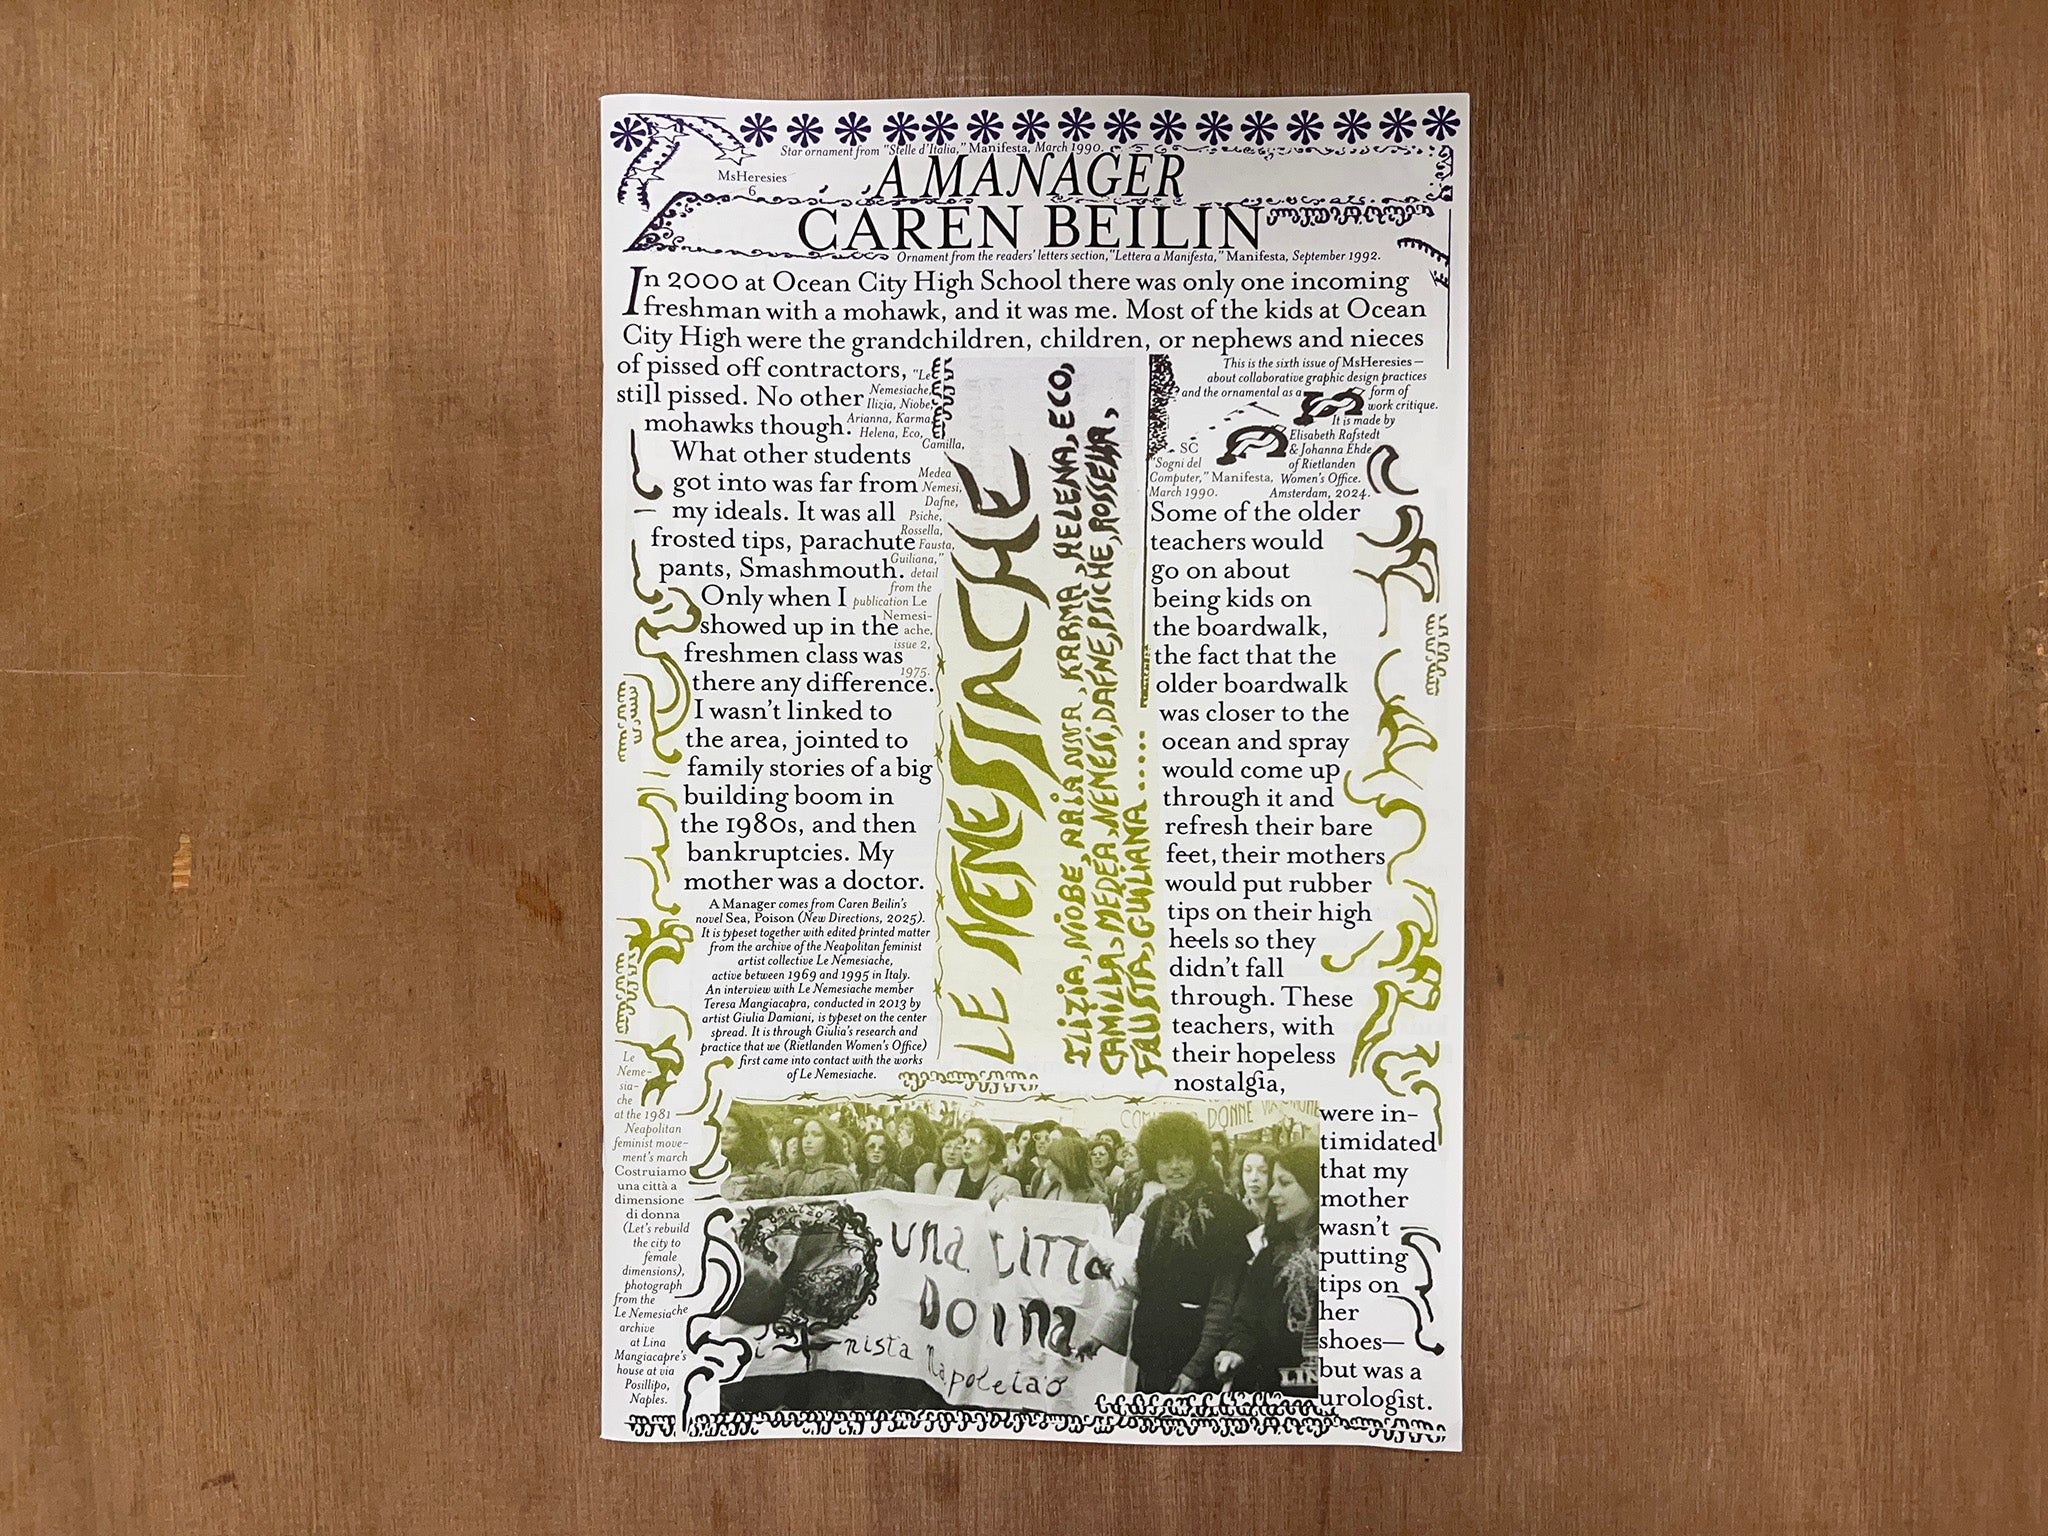 Star ornament from "Stelle d'Italia," Manifesta, March 1990.
MsHeresies
6
A MANAGER
CAREN BEILIN
Ornament from the readers' letters section, "Lettera a Manifesta," Manifesta, September 1992.
In 2000 at Ocean City High School there was only one incoming
freshman with a mohawk, and it was me. Most of the kids at Ocean
City High were the grandchildren, children, or nephews and nieces
of pissed off contractors,
still pissed. No other
mohawks though.
What other students
got into was far from
my ideals. It was all
frosted tips, parachute
pants, Smashmouth.
Only when I
showed up in the
freshmen class was
there any difference.
I wasn't linked to
the area, jointed to
family stories of a big
building boom in
the 1980s, and then
bankruptcies. My
mother was a doctor.
"Le
Nemesiache,
Ilizia, Niobe,
Arianna, Karma,
Helena, Eco,
Camilla,
Medea
Nemesi,
Dafne,
Psiche,
Rossella,
Fausta,
Guiliana,"
detail
from the
publication Le
Nemesi-
ache,
issue 2,
1975.
A Manager comes from Caren Beilin's
novel Sea, Poison (New Directions, 2025).
It is typeset together with edited printed matter
from the archive of the Neapolitan feminist
artist collective Le Nemesiache,
active between 1969 and 1995 in Italy.
An interview with Le Nemesiache member
Teresa Mangiacapra, conducted in 2013 by
artist Giulia Damiani, is typeset on the center
spread. It is through Giulia's research and
practice that we (Rietlanden Women's Office)
first came into contact with the works
of Le Nemesiache.
LE NEMESIACHE
ILIZIA, NIOBE, ARIANNA, KARMA, HELENA, ECO,
CAMILLA, MEDEA, NEMESI, DAFNE, PSICHE, ROSSELLA,
FAUSTA, GUILIANA.....
This is the sixth issue of MsHeresies—
about collaborative graphic design practices
and the ornamental as a form of
work critique.
It is made by
Elisabeth Rafstedt
& Johanna Ehde
of Rietlanden
Women's Office.
Amsterdam, 2024.
SC
"Sogni del
Computer," Manifesta,
March 1990.
Some of the older
teachers would
go on about
being kids on
the boardwalk,
the fact that the
older boardwalk
was closer to the
ocean and spray
would come up
through it and
refresh their bare
feet, their mothers
would put rubber
tips on their high
heels so they
didn't fall
through. These
teachers, with
their hopeless
nostalgia,
were in-
timidated
that my
mother
wasn't
putting
tips on
her
shoes—
but was a
urologist.
Le
Neme-
sia-
che
at the 1981
Neapolitan
feminist move-
ment's march
Costruiamo
una città a
dimensione
di donna
(Let's rebuild
the city to
female
dimensions),
photograph
from the
Le Nemesiache
archive
at Lina
Mangiacapre's
house at via
Posillipo,
Naples.
DONNE
UNA CITTA
DONNA
nista napoletao